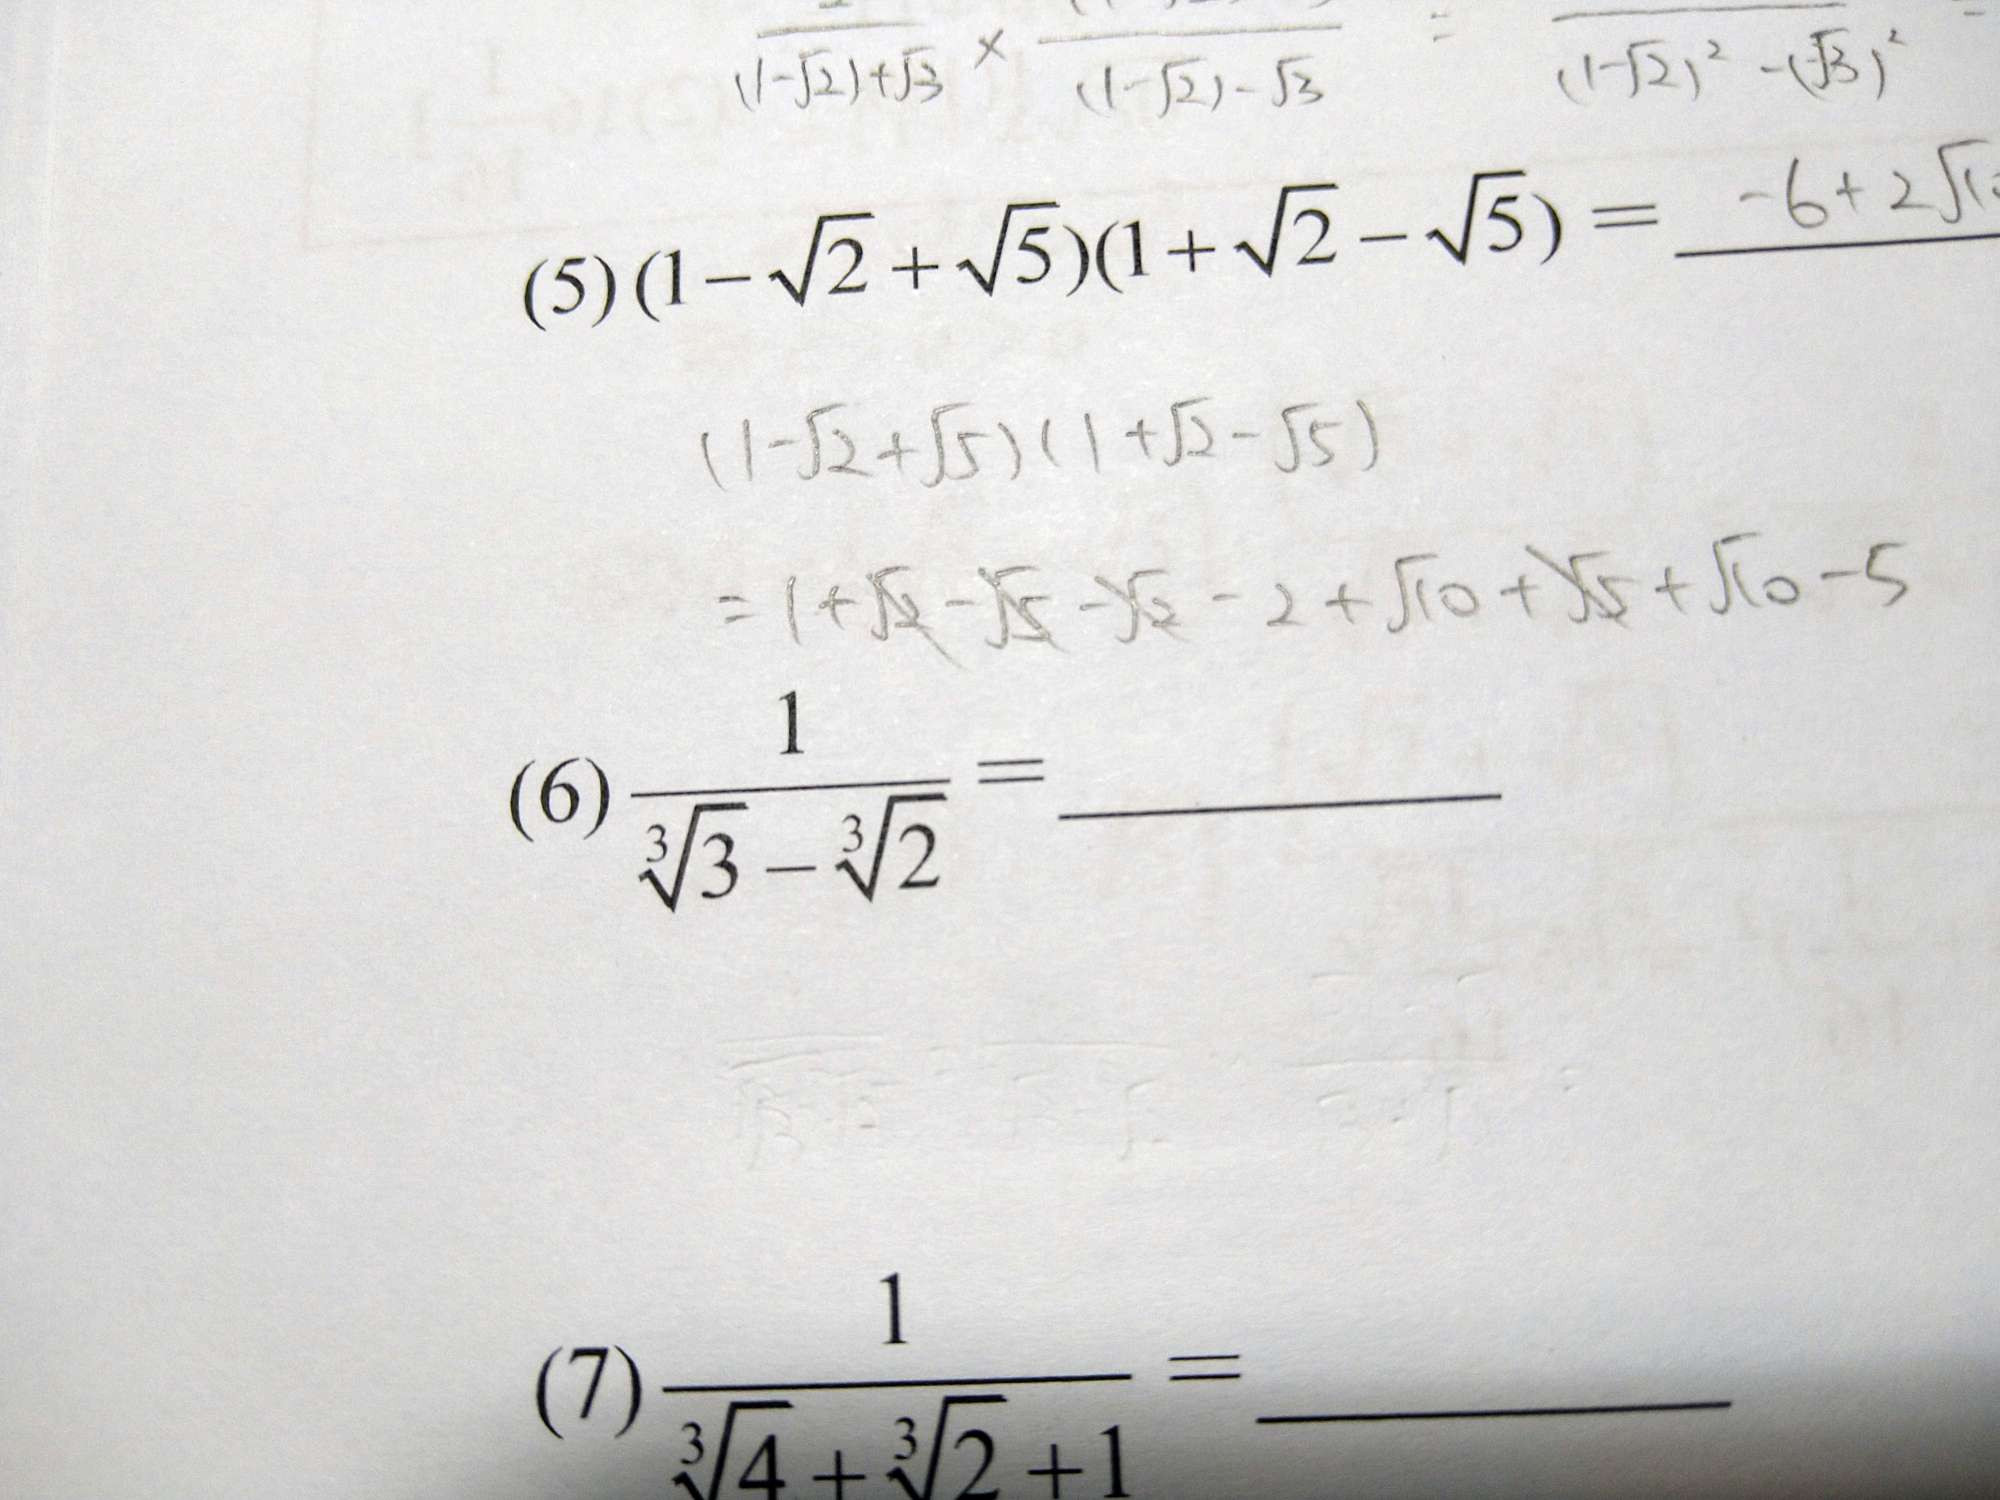 (1-√2)+√3 × (1-√2)-√3 = (1-√2)² -(√3)² =
(5) (1-√2+√5)(1+√2-√5) = -6+2√10
(1-√2+√5)(1+√2-√5)
= 1+√2-√5-√2-2+√10+√5+√10-5
(6) 1/(∛3-∛2) =
(7) 1/(∛4+∛2+1) =